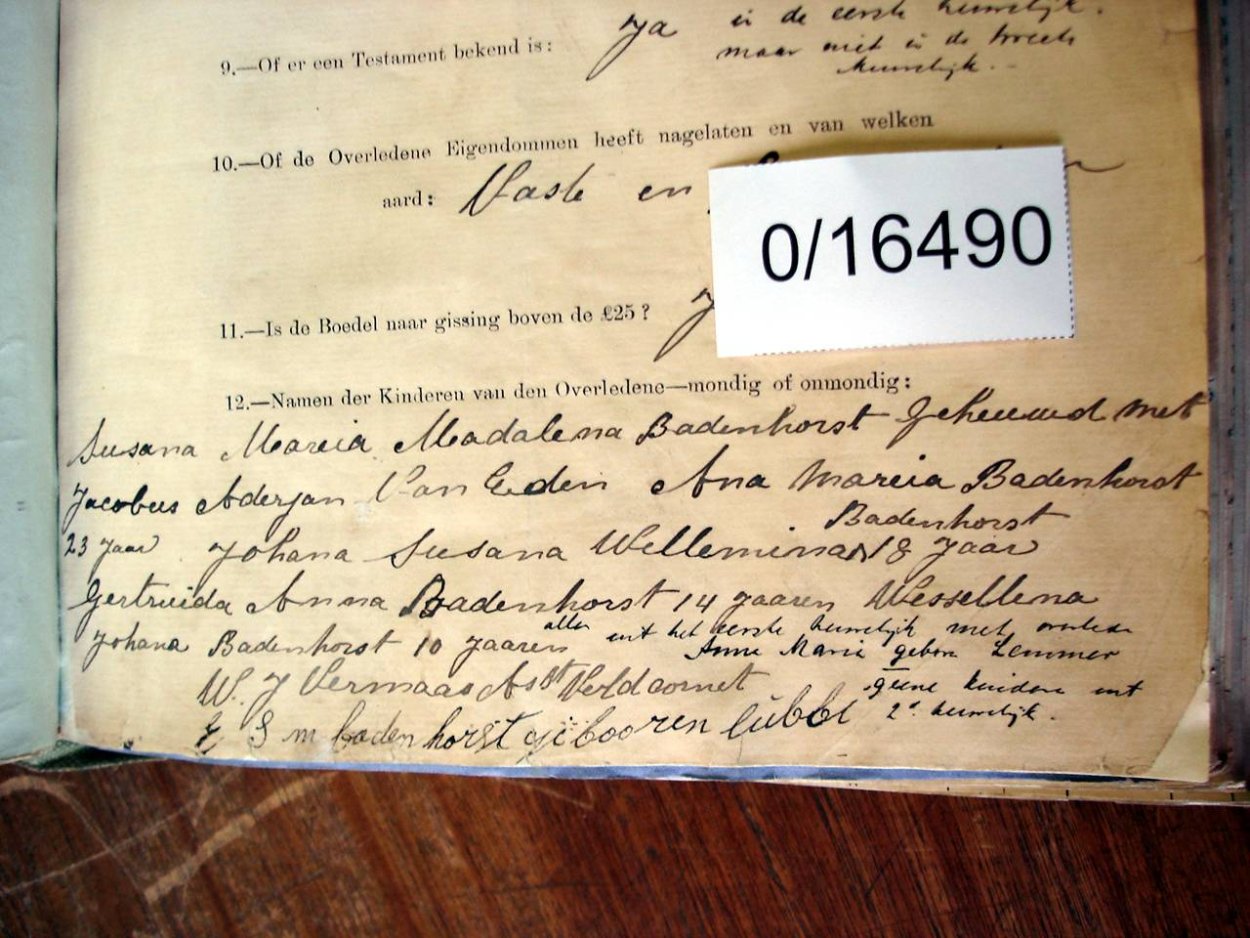 Ja in de eerste huwelijk.
9.—Of er een Testament bekend is:
maar niet in de tweede
huwelijk.
10.—Of de Overledene Eigendommen heeft nagelaten en van welken
aard: Vaste en
0/16490
11.—Is de Boedel naar gissing boven de £25?
12.—Namen der Kinderen van den Overledene—mondig of onmondig:
Susana Mareia Madalena Badenhorst Geheuwd met
Jacobus Aderjan Van Eeden Ana Mareia Badenhorst
Badenhorst
23 Jaar Johana Susana Welleminа 18 Jaar
Gertruida Anna Badenhorst 14 Jaaren Wessellena
Johana Badenhorst 10 Jaaren allen uit het eerste huwelijk met
Anna Maria gebore Lemmer
W. J Vermaas Asst Veldcornet geene kinders uit
S m badenhorst gebooren lubbe 2e huwelijk.